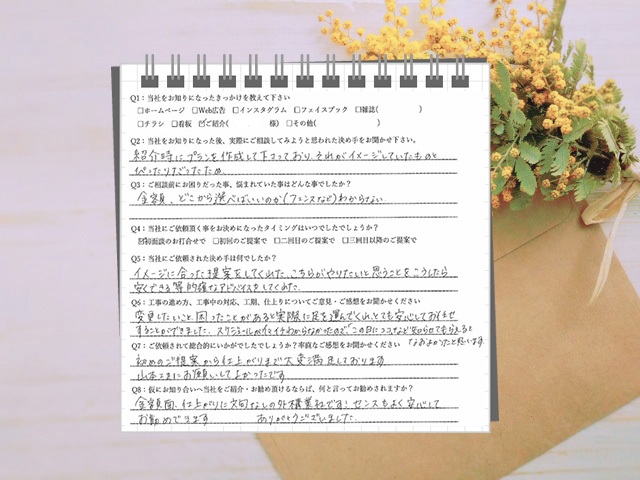 Q1：当社をお知りになったきっかけを教えて下さい
□ホームページ □Web広告 □インスタグラム □フェイスブック □雑誌( )
□チラシ □看板 ☑ご紹介( 様) □その他( )
Q2：当社をお知りになった後、実際にご相談してみようと思われた決め手をお聞かせ下さい。
紹介時にプランを作成して下さっており、それがイメージしていたものと
ぴったりだったため
Q3：ご相談前にお困りだった事、悩まれていた事はどんな事でしたか？
金額、どこから選べばいいのか(フェンスなど)わからない
Q4：当社にご依頼頂く事をお決めになったタイミングはいつでしたでしょうか？
☑初面談のお打合せで □初回のご提案で □二回目のご提案で □三回目以降のご提案で
Q5：当社にご依頼された決め手は何でしたか？
イメージに合った提案をしてくれた、こちらがやりたいと思うことをこうしたら
安くできる等的確なアドバイスをしてくれた
Q6：工事の進め方、工事中の対応、工期、仕上りについてご意見・ご感想をお聞かせください
変更したいこと、困ったことがあると実際に足を運んでくれ、とても安心してお任せ
することができました。スケジュールがイマイチわからなかったので この日にココなど知らせてもらえると
なおよかったと思います
Q7：ご依頼されて総合的にいかがでしたでしょうか？率直なご感想をお聞かせください
初めのご提案から仕上がりまで大変満足しております
山本さまにお願いしてよかったです
Q8：仮にお知り合いへ当社をご紹介・お勧め頂けるならば、何と言ってお勧めされますか？
金額面、仕上がりに文句なしの外構業社です！センスもよく安心して
お勧めできます ありがとうございました